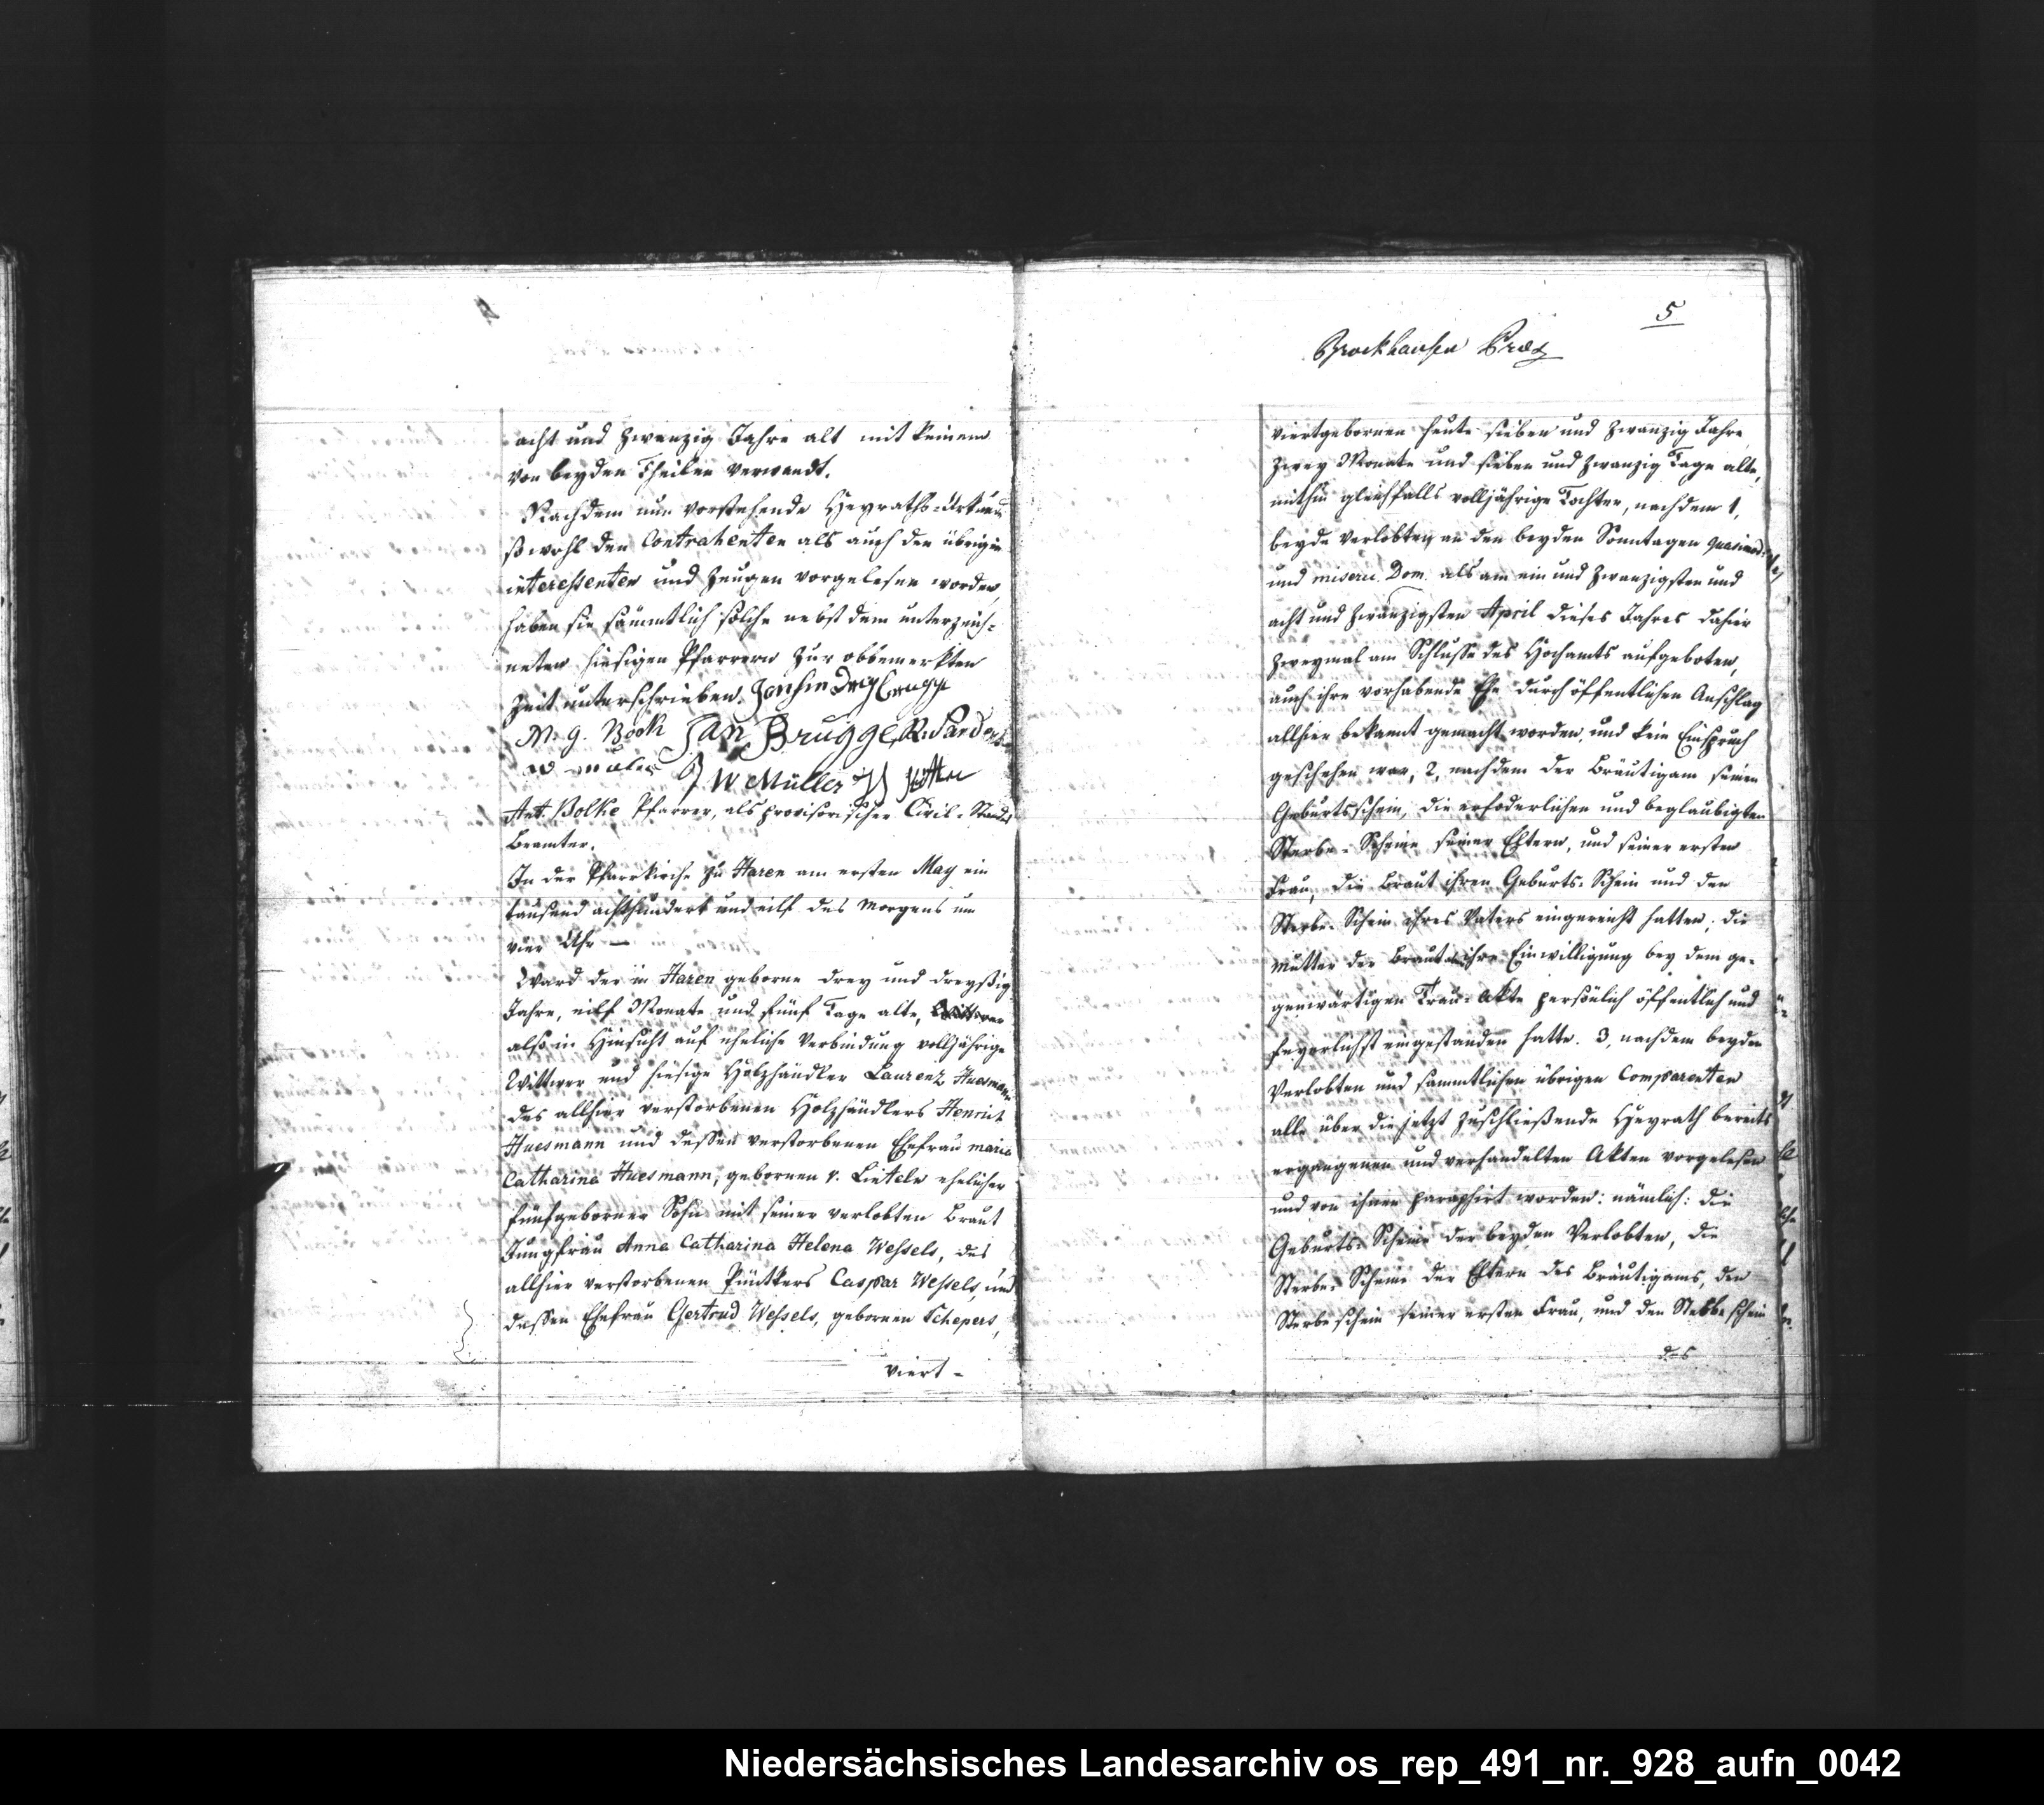 acht und zwanzig Jahre alt mit keinem
von beyden Theilen verwandt.
Nachdem nun vorstehende Heyraths-Urkunde
sowohl den Contrahenten als auch den übrigen
interessenten und Zeugen vorgelesen worden,
haben sie sämmtlich solche nebst dem unterzeich-
neten hiesigen Pfarrern zur obbemerkten
Zeit unterschrieben.
M. g. Bock Jan Brugge
J W Müller
Ant. Bolke Pfarrer, als provisorischer Civil-Stands
Beamter.
In der Pfarrkirche zu Haren am ersten May ein
tausend achthundert und eilf des Morgens um
vier Uhr —
Ward der in Haren geborne drey und dreyßig
Jahre, eilf Monate und fünf Tage alte,
also in Hinsicht auf eheliche Verbindung volljährige
Wittwer und hiesige Holzhändler Laurenz Huesmann
des allhier verstorbenen Holzhändlers Henrich
Huesmann und dessen verstorbenen Ehefrau maria
Catharina Huesmann, gebornen v. Linteln ehelicher
fünfgeborner Sohn mit seiner verlobten Braut
Jungfrau Anna Catharina Helena Wessels, des
allhier verstorbenen Püntkers Caspar Wessels, und
dessen Ehefrau Gertrud Wessels, gebornen Schepers,
viert-
5
Brockhausen
viertgebornen heute sieben und zwanzig Jahre
zwey Monate und sieben und zwanzig Tage alte,
mithin gleichfalls volljährige Tochter, nachdem 1,
beyde Verlobten an den beyden Sonntagen quasimod:
und miseric. Dom. als am ein und zwanzigsten und
acht und zwanzigsten April dieses Jahres dahier
zweymal am Schlusse des Hochamts aufgeboten,
auch ihre vorhabende Ehe durch öffentlichen Anschlag
allhier bekannt gemacht worden, und kein Einspruch
geschehen war, 2, nachdem der Bräutigam seinen
Geburtsschein, die erforderlichen und beglaubigten
Sterbe-Scheine seiner Eltern, und seiner ersten
Frau, die Braut ihren Geburts-Schein und den
Sterbe-Schein ihres Vaters eingereicht hatten; die
Mutter der Braut ihre Einwilligung bey dem ge-
genwärtigen Trau-Akte persönlich öffentlich und
feyerlichst eingestanden hatte. 3, nachdem beyden
Verlobten und sammtlichen übrigen Comparenten
alle über die jetzt zuschließende Heyrath bereits
ergangenen und verhandelten Akten vorgelesen
und von ihnen paraphirt worden: nämlich: die
Geburts-Scheine der beyden Verlobten, die
Sterbe-Scheine der Eltern des Bräutigams, den
Sterbeschein seiner ersten Frau, und den Sterbeschein
des
Niedersächsisches Landesarchiv os_rep_491_nr._928_aufn_0042